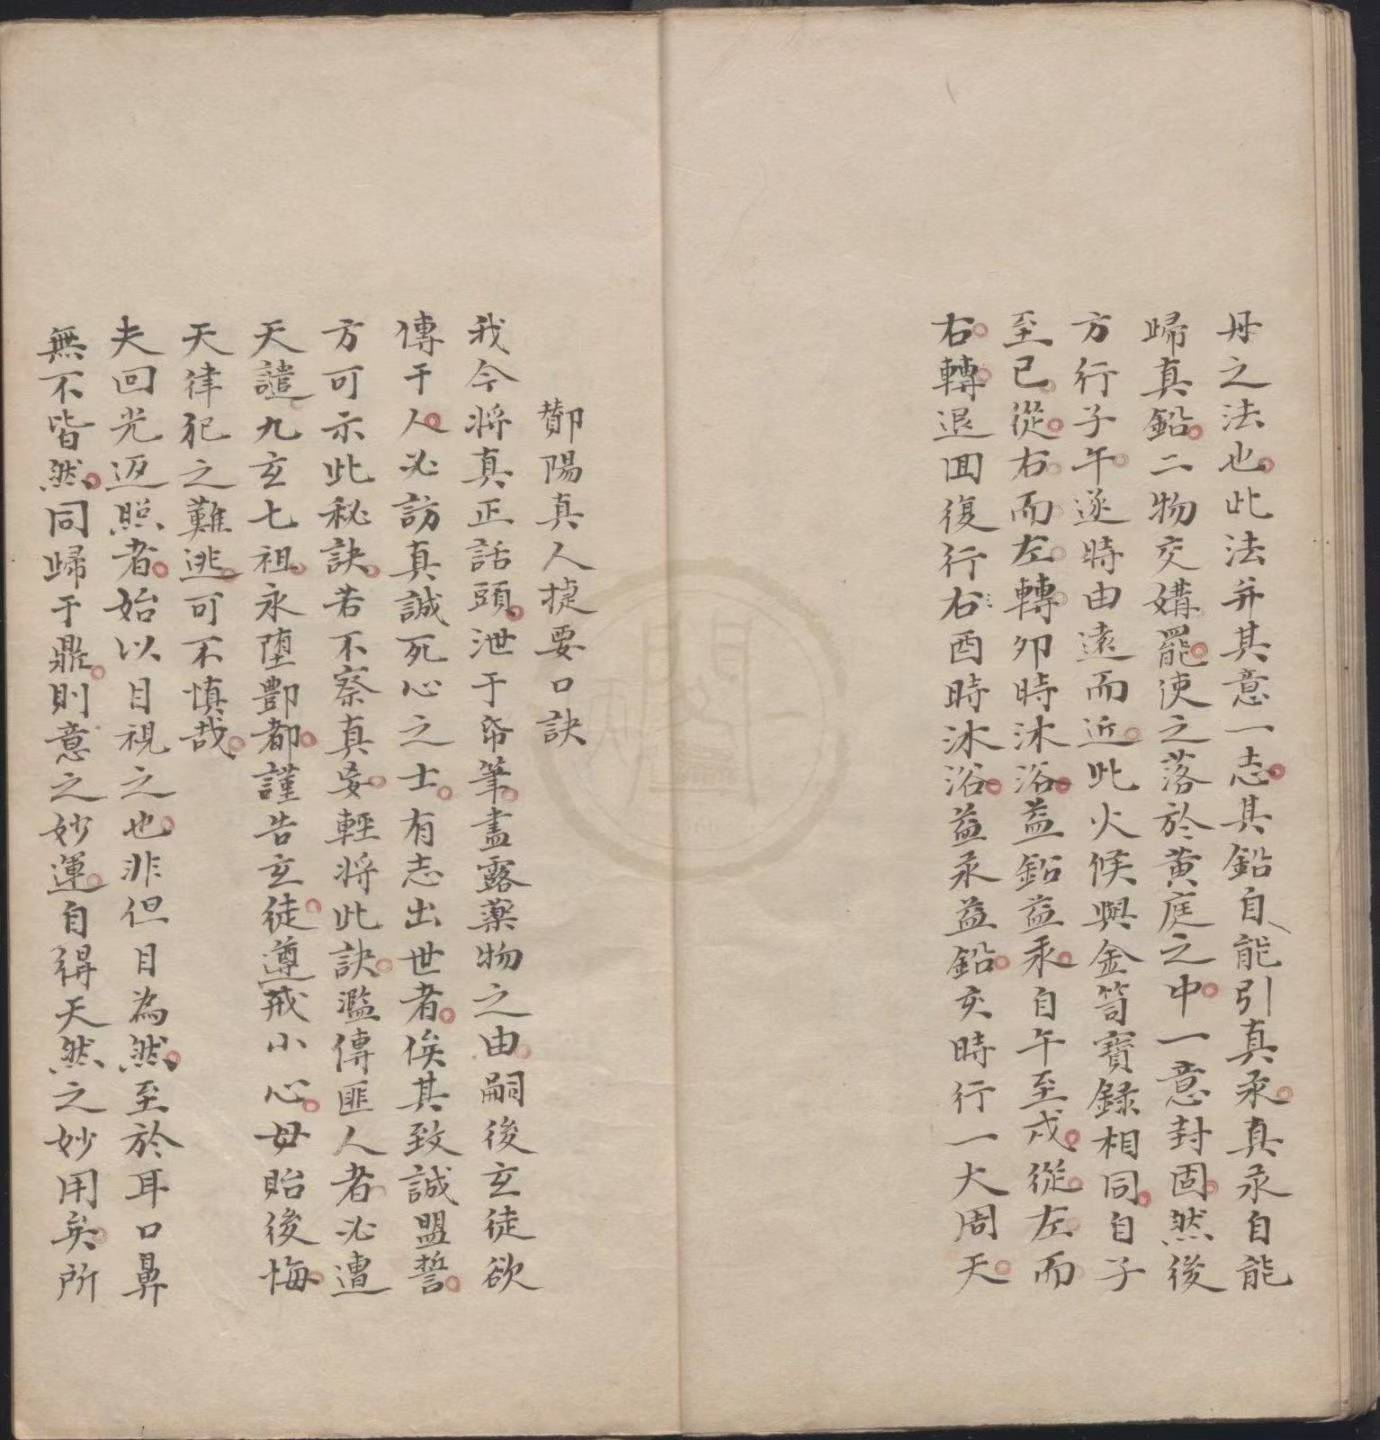 丹之法也此法并其意一志其鉛自能引真汞真汞自能
歸真鉛二物交媾罷使之落於黄庭之中一意封固然後
方行子午逐時由遠而近此火候與金笥寶錄相同自子
至巳從右而左轉卯時沐浴益鉛益汞自午至戌從左而
右轉退回復行右酉時沐浴益汞益鉛亥時行一大周天
鄼陽真人捷要口訣
我今將真正話頭泄于帋筆盡露藥物之由嗣後玄徒欲
傳于人必訪真誠死心之士有志出世者俟其致誠盟誓
方可示此秘訣若不察真妄輕將此訣濫傳匪人者必遭
天譴九玄七祖永堕酆都謹告玄徒遵戒小心毋貽後悔
天律犯之難逃可不慎哉
夫回光返照者始以目視之也非但目為然至於耳口鼻
無不皆然同歸于鼎則意之妙運自得天然之妙用矣所